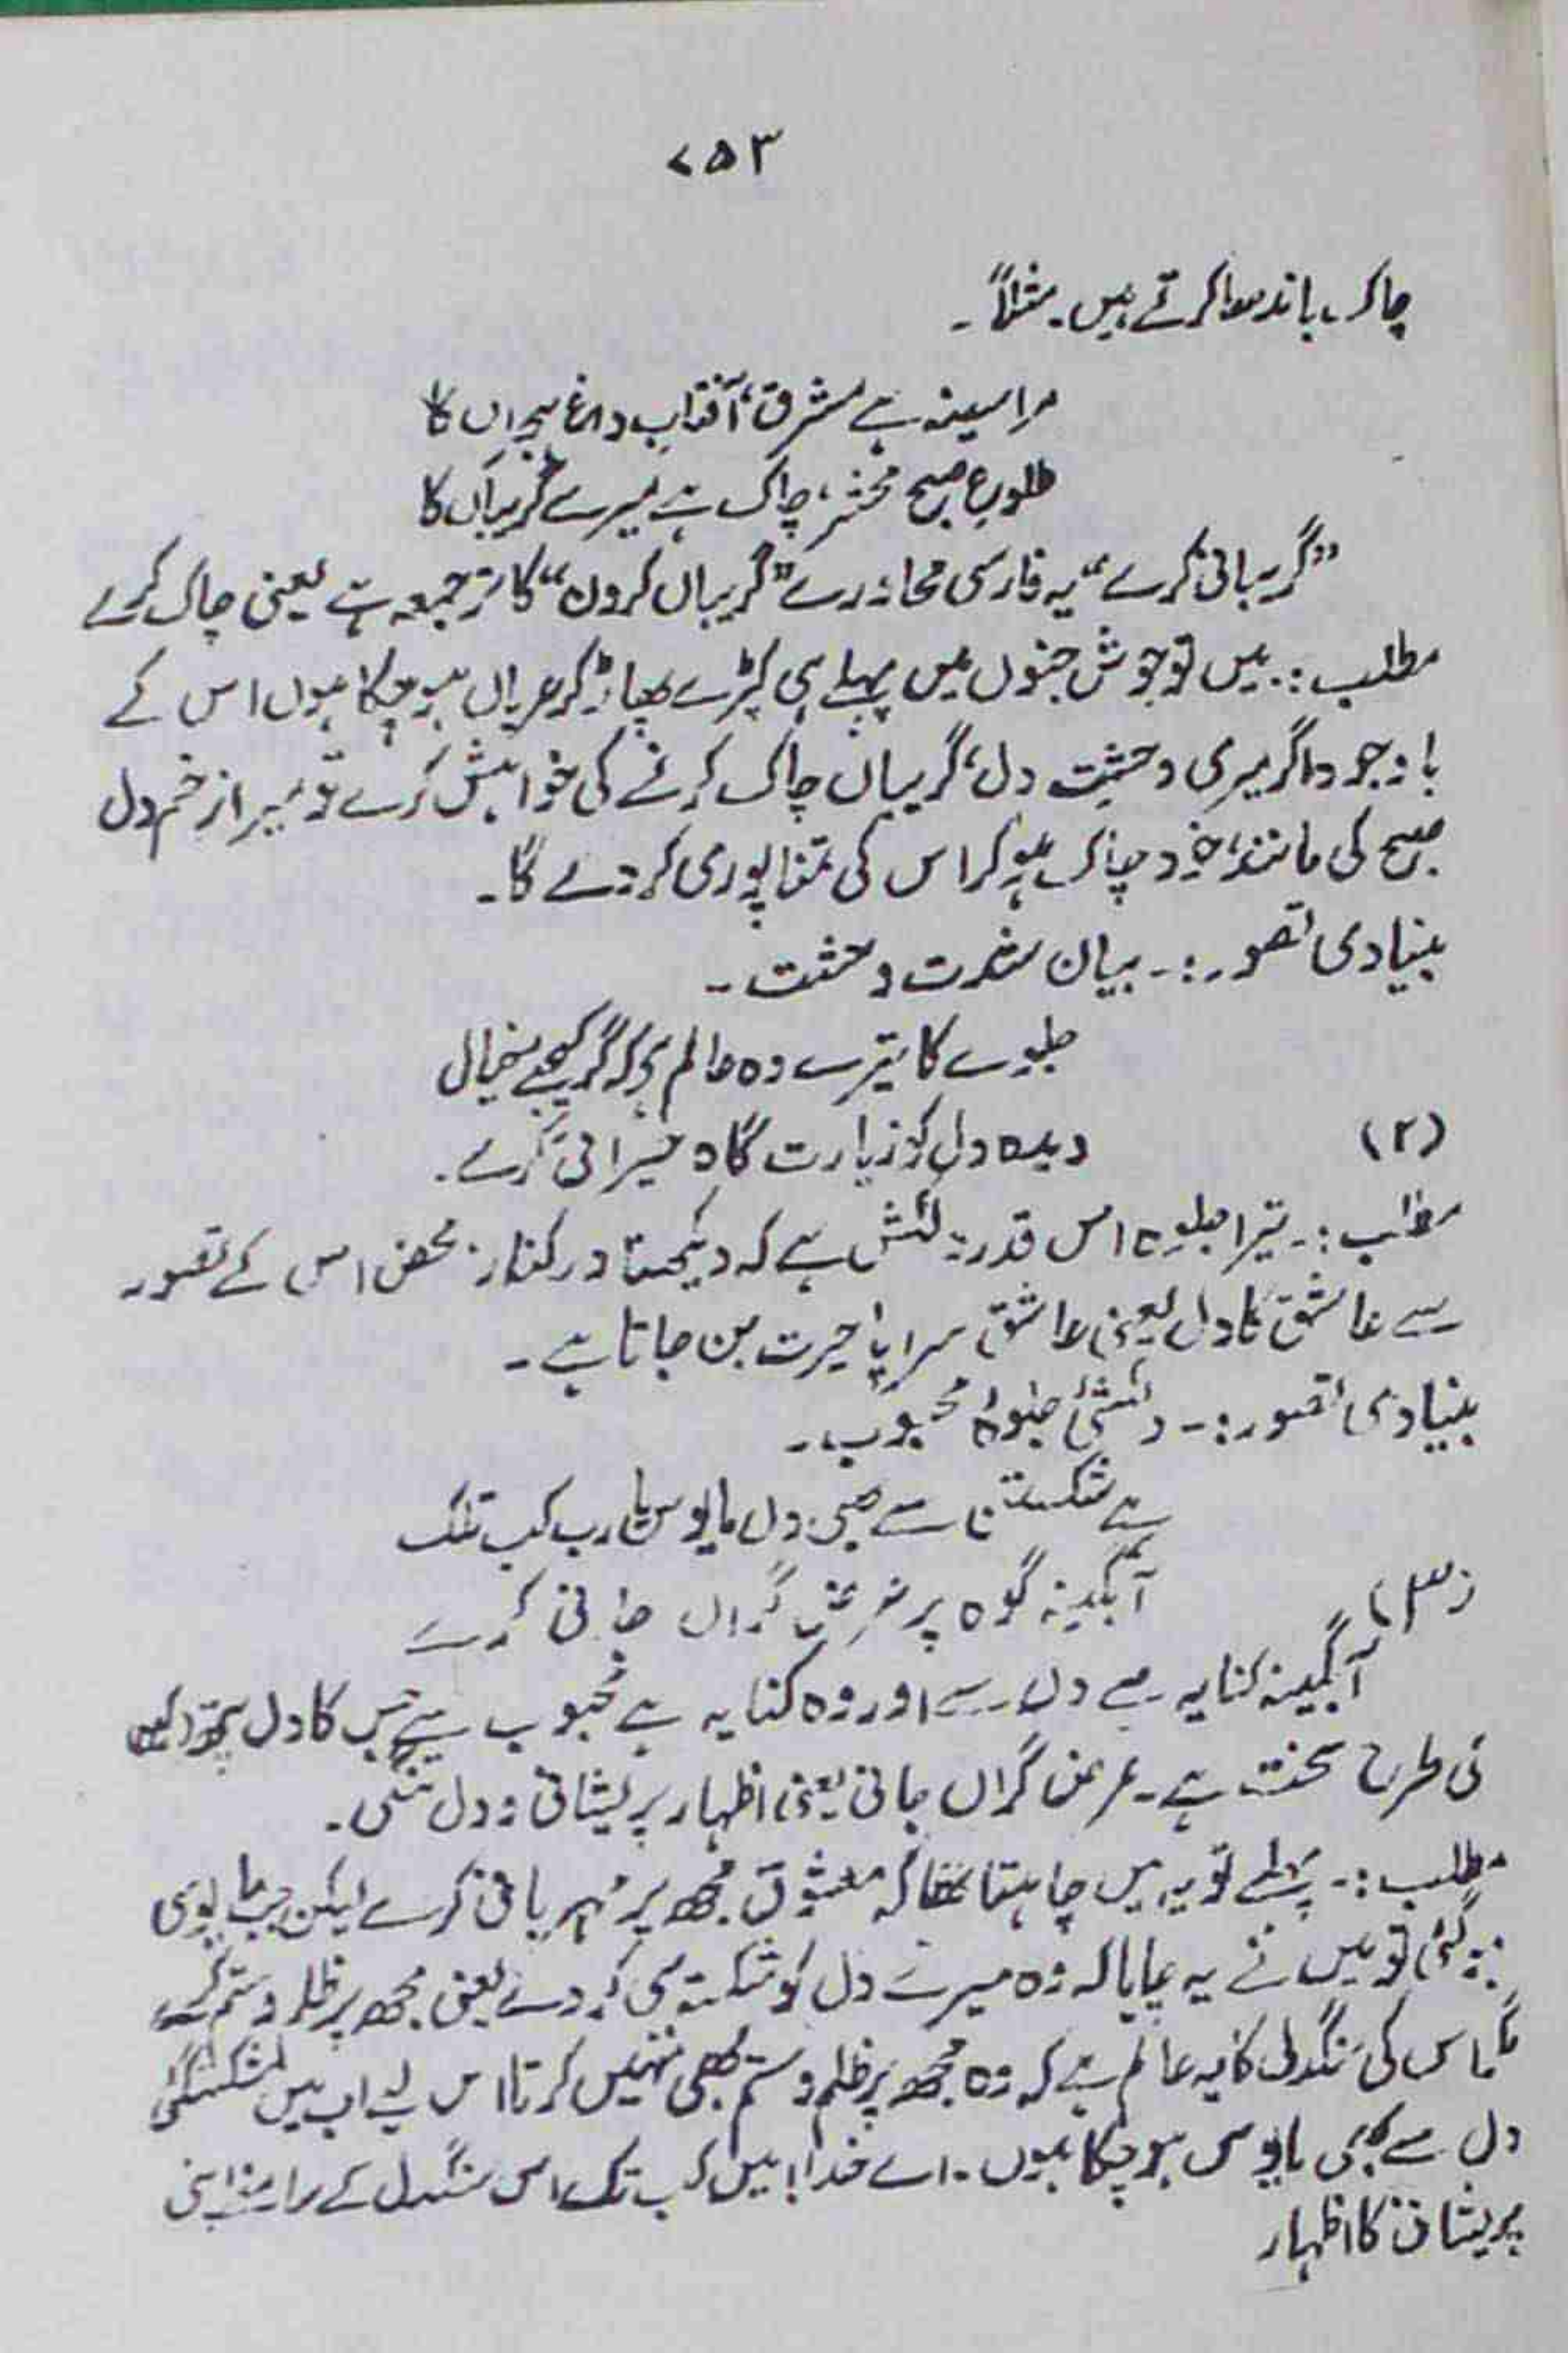 ۷۵۳
چاک باندھا کرتے ہیں۔ مثلاً۔
مرا سینہ ہے مشرق، آفتاب داغ ہجراں کا
طلوع صبح محشر، چاک ہے میرے گریباں کا
"گریبانی کرے" یہ فارسی محاورے "گریباں کردن" کا ترجمہ ہے یعنی چاک کرے
مطلب:۔ میں تو جوش جنوں میں پہلے ہی کپڑے پھاڑ کر عریاں ہو چکا ہوں اس کے
باوجود اگر میری وحشت دل، گریباں چاک کرنے کی خواہش کرے تو میرا زخم دل
صبح کی مانند، خود چاک ہو کر اس کی تمنا پوری کر دے گا۔
بنیادی تصور:۔ بیان شدت وحشت۔
جلوے کا تیرے وہ عالم ہے کہ گر کیجے خیال
(۲) دیدہ دل کو زیارت گاہ حیرانی کرے۔
مطلب:۔ تیرا جلوہ اس قدر دلکش ہے کہ دیکھنا درکنار۔ محض اس کے تصور
سے عاشق کا دل یعنی عاشق سراپا حیرت بن جاتا ہے۔
بنیادی تصور:۔ دلکشئ جلوۂ محبوب۔
ہے شکستن سے بھی دل مایوس یا رب کب تلک
(۳) آبگینہ کوہ پر عرض گراں جانی کرے
آبگینہ کنایہ ہے دل سے اور وہ کنایہ ہے محبوب سے جس کا دل پتھر
کی طرح سخت ہے۔ عرض گراں جانی یعنی اظہار پریشانی و دل تنگی۔
مطلب:۔ پہلے تو یہ میں چاہتا تھا کہ معشوق مجھ پر مہربانی کرے لیکن جب مایوسی
ہو گئی تو میں نے یہ چاہا کہ وہ میرے دل کو شکستہ ہی کر دے یعنی مجھ پر ظلم و ستم کرے
مگر اس کی سنگدلی کا یہ عالم ہے کہ وہ مجھ پر ظلم و ستم بھی نہیں کرتا اس لیے اب میں شکستگئ
دل سے بھی مایوس ہو چکا ہوں۔ اے خدا! میں کب تک اس سنگدل کے سامنے اپنی
پریشانی کا اظہار